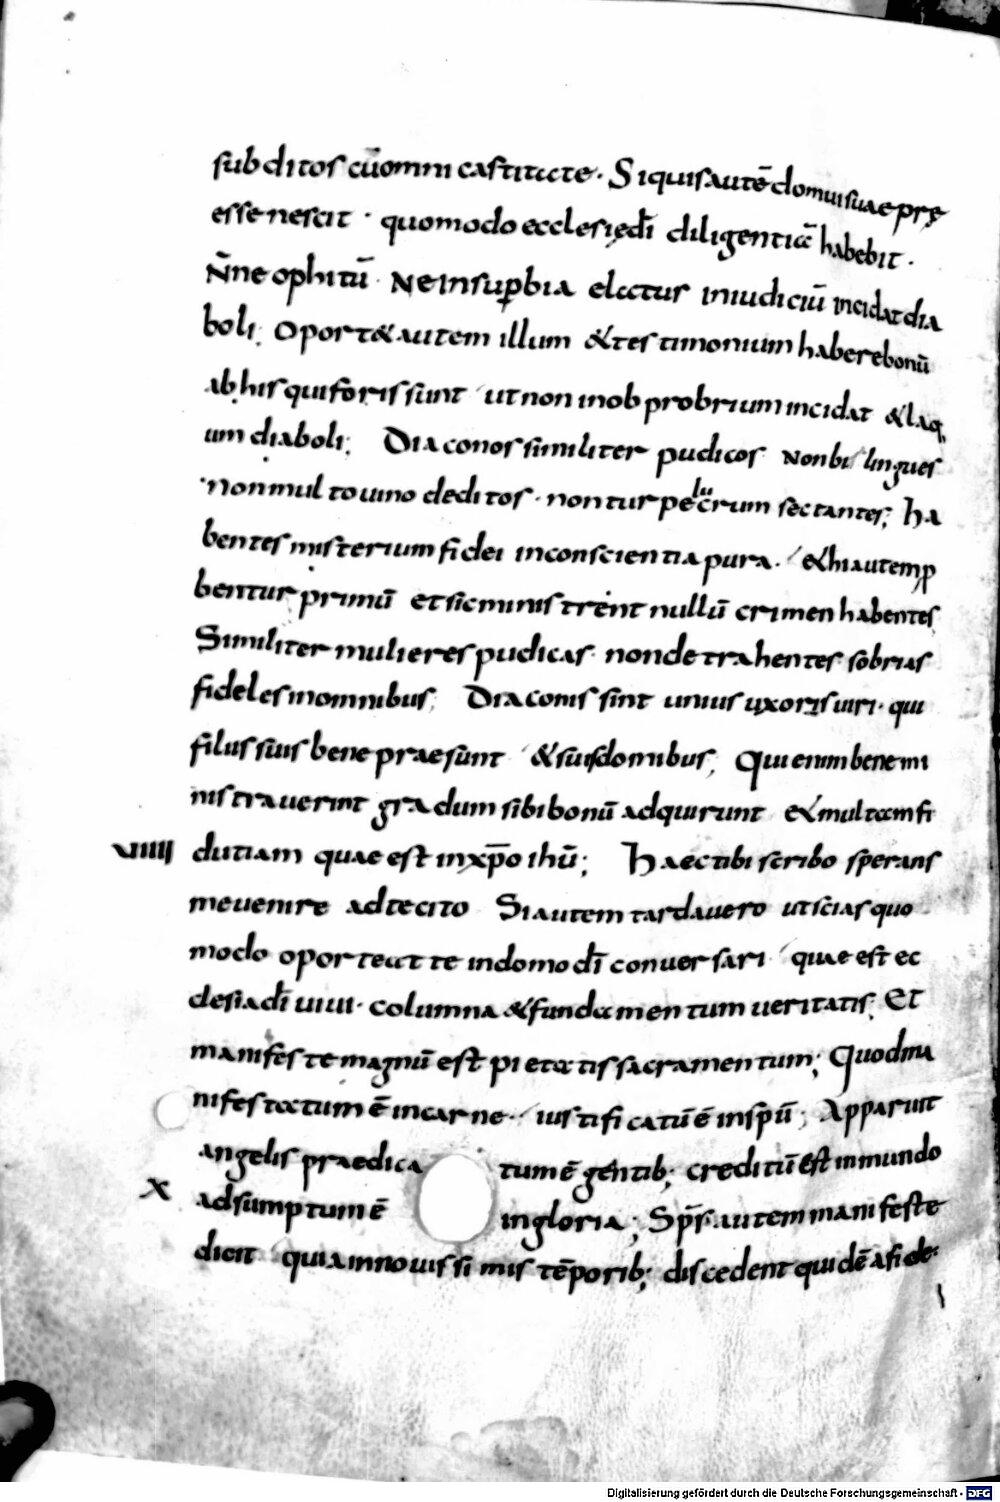 subditos cū omni castitate · Si quis autē domui suae prę
esse nescit · quomodo ecclesię dī diligentiā habebit ·
N̄ neophitū · Ne in supbia elatur in iudiciū incidat dia
boli; Oport& autem illum & testimonium habere bonū
ab his qui foris sunt ut non in obprobrium incidat & laq
um diaboli; Diaconos similiter pudicos non bilingues
non multo uino deditos · non turpe lucrum sectantes; Ha
bentes misterium fidei in conscientia pura · & hi autem p
bentur primū et sic ministrent nullū crimen habentes
Similiter mulieres pudicas · non detrahentes sobrias
fideles in omnibus; Diaconis sint unius uxoris uiri · qui
filiis suis bene praesunt & suis domibus; Qui enim bene mi
nistrauerint gradum sibi bonū adquirunt & multam fi
uiiii duciam quae est in xp̄o ihū; Haec tibi scribo sperans
me uenire ad te cito Si autem tardauero ut scias quo
modo oporteat te in domo dī conuersari quae est ec
clesia dī uiui · columna & fundamentum ueritatis; Et
manifeste magnū est pietatis sacramentum; Quod ma
nifestatum ē in carne · iustificatū ē in spū; Apparuit
angelis praedica tum ē gentib; creditū est in mundo
x adsumptum ē in gloria; Sps autem manifeste
dicit quia in nouissimis tēporib; discedent quidē a fide